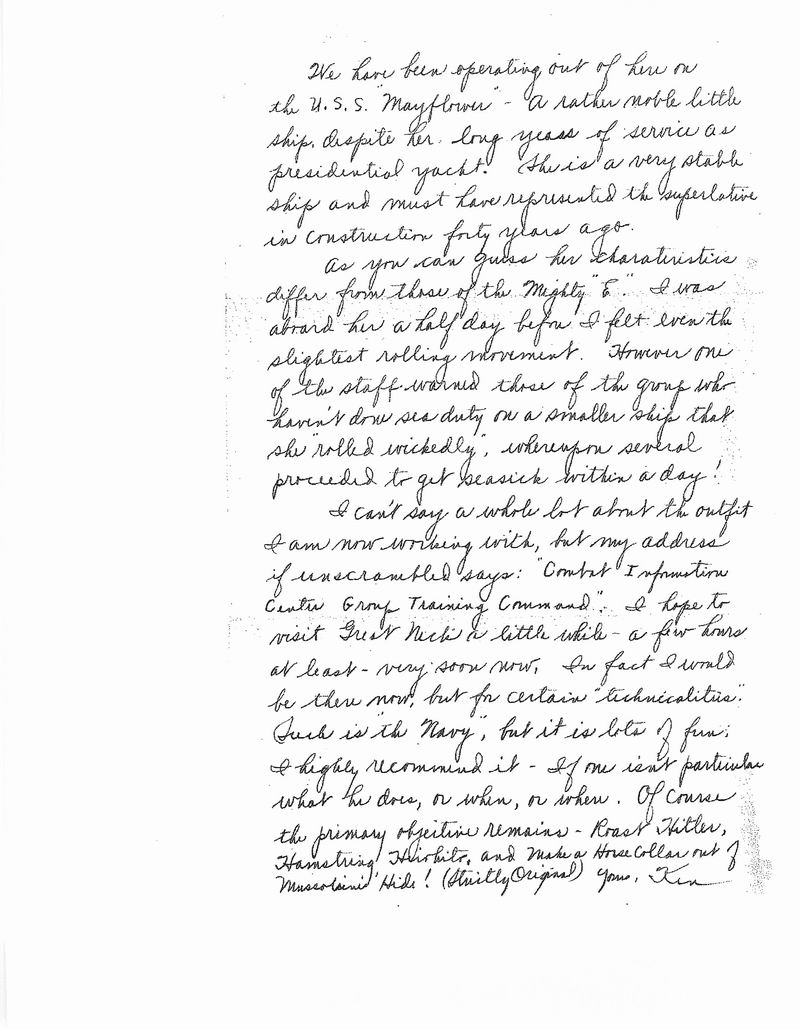 We have been operating out of here on
the U.S.S. "Mayflower" - A rather noble little
ship, despite her long years of service as
presidential yacht. She is a very stable
ship and must have represented the superlative
in construction forty years ago.
As you can guess her charateristics
differ from those of the "Mighty "E". I was
aboard her a half day before I felt even the
slightest rolling movement. However one
of the staff warned those of the group who
haven't done sea duty on a smaller ship that
she "rolled wickedly", whereupon several
proceeded to get seasick within a day!
I can't say a whole lot about the outfit
I am now working with, but my address
if unscrambled says: "Combat Information
Center Group Training Command". I hope to
visit Great Neck a little while - a few hours
at least - very soon now. In fact I would
be there now, but for certain "technicalities".
Such is "the Navy", but it is lots of fun;
I highly recommend it - If one isn't particular
what he does, or when, or when. Of Course
the primary objective remains - Roast Hitler,
Hamstring Hirohito, and Make a Horse Collar out of
Mussolinis' Hide! (Strictly Original) Yours, Ken